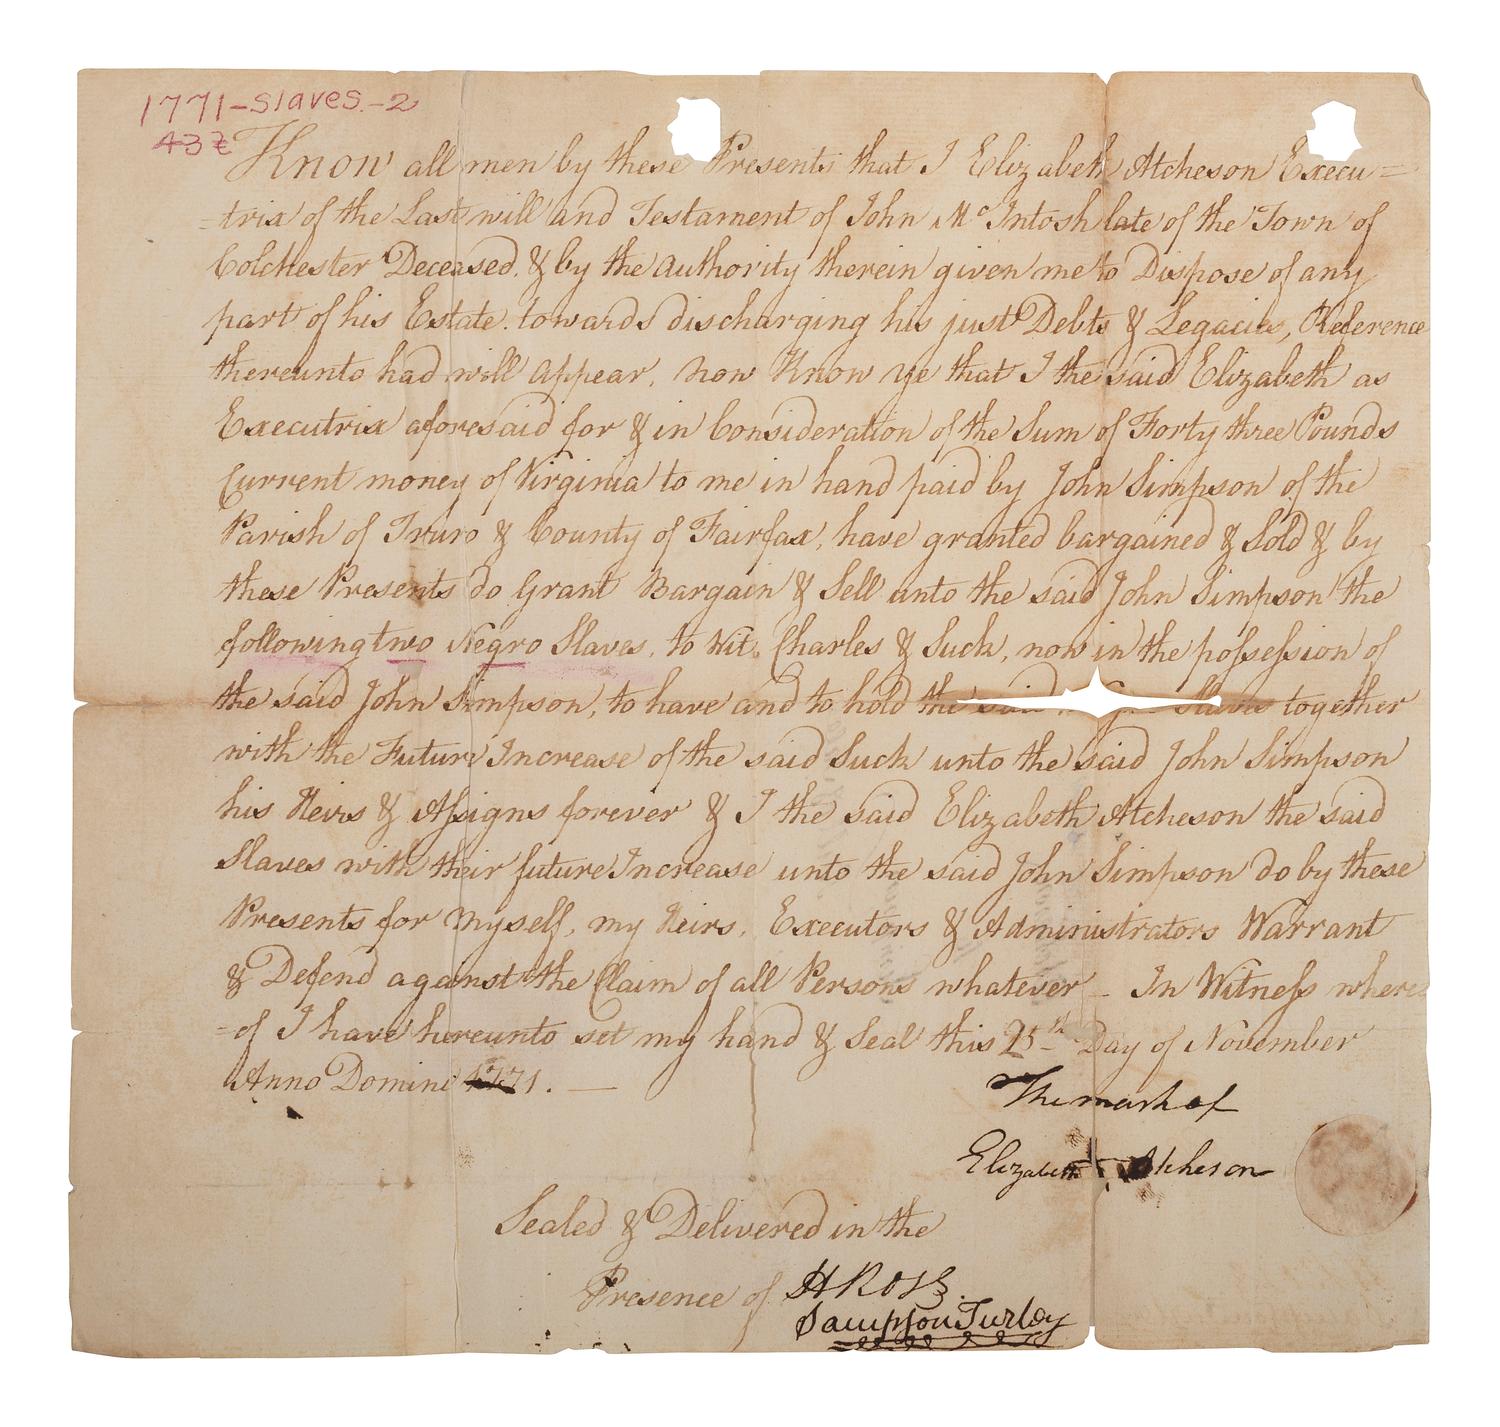 1771-slaves.-2
43£
Know all men by these Presents that I Elizabeth Atcheson Execu=
=trix of the Last will and Testament of John McIntosh late of the Town of
Colchester Deceased, & by the authority therein given me to Dispose of any
part of his Estate. towards discharging his just Debts & Legacies, Reference
thereunto had will appear, now Know ye that I the said Elizabeth as
Executrix aforesaid for & in Consideration of the Sum of Forty three Pounds
Current money of Virginia to me in hand paid by John Simpson of the
Parish of Truro & County of Fairfax, have granted bargained & Sold & by
these Presents do Grant Bargain & Sell unto the said John Simpson the
following two Negro Slaves, to Wit. Charles & Suck, now in the possession of
the said John Simpson, to have and to hold the said Slaves together
with the Future Increase of the said Suck unto the said John Simpson
his Heirs & Assigns forever & I the said Elizabeth Atcheson the said
Slaves with their future Increase unto the said John Simpson do by these
Presents for myself, my Heirs, Executors & Administrators Warrant
& Defend against the Claim of all Persons whatever _ In Witness where
=of I have hereunto set my hand & Seal this 25th Day of November
Anno Domini 1771. —
The mark of
Elizabeth Atcheson
Sealed & Delivered in the
Presence of H Ross
Sampson Turley